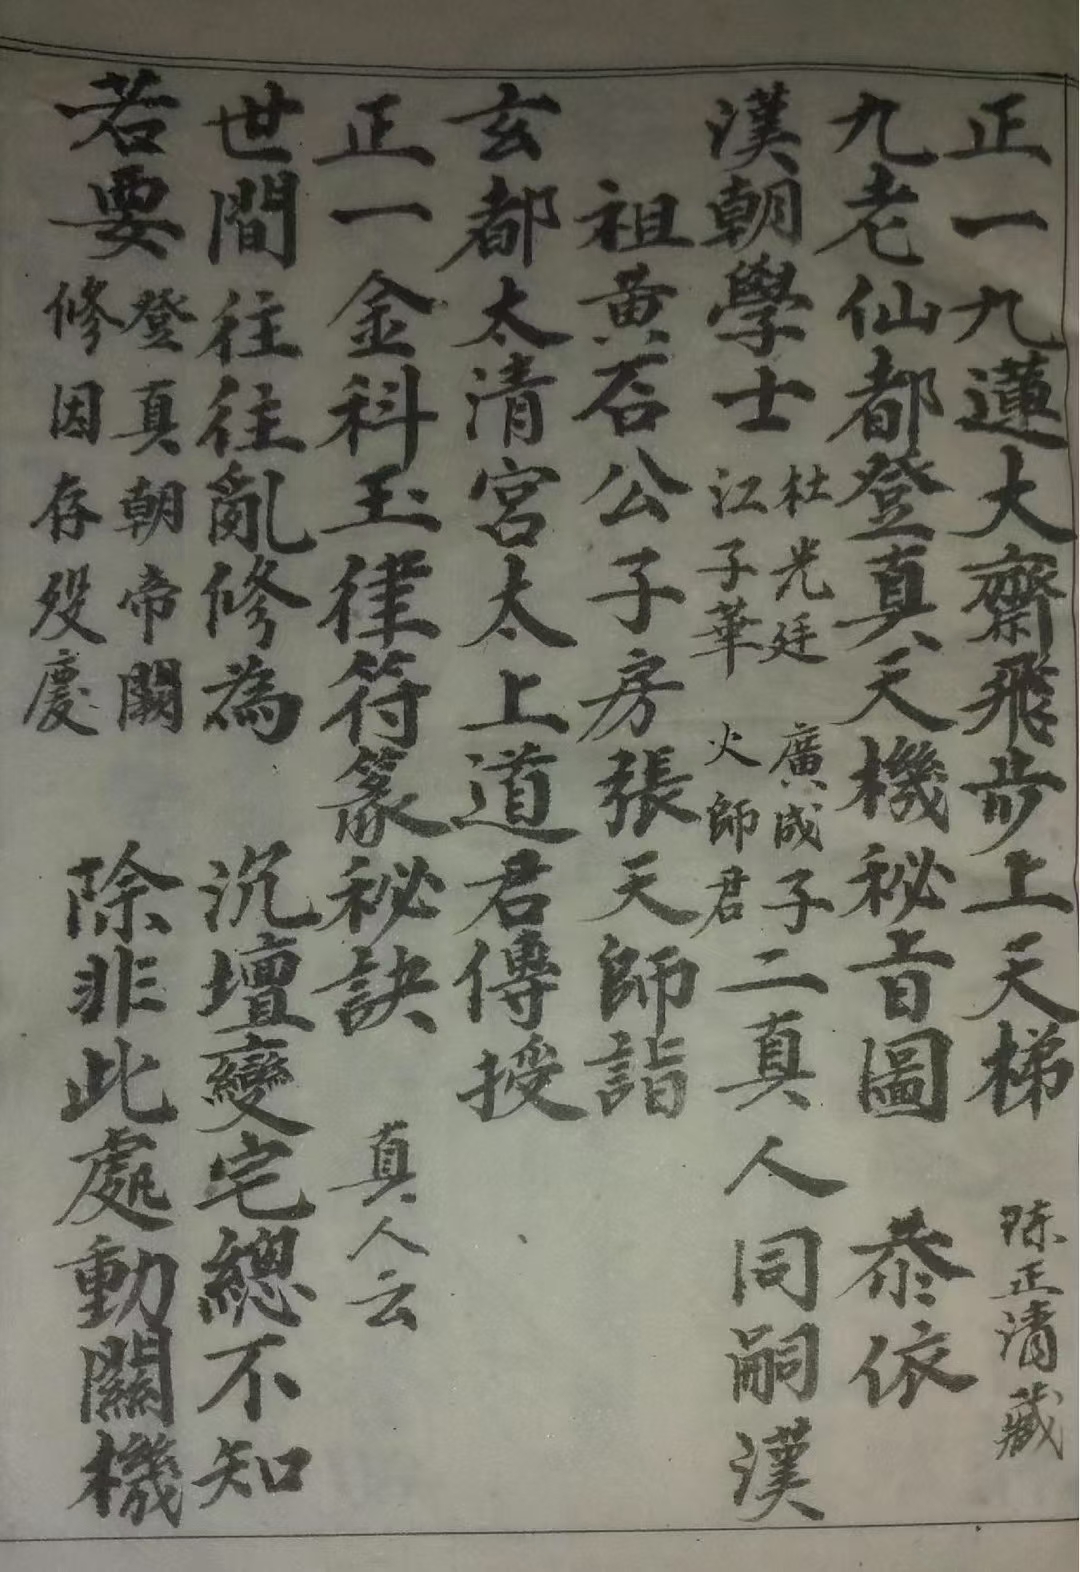 正一九蓮大齋飛步上天梯 陈正清藏
九老仙都登真天機秘旨圖 恭依
漢朝學士 杜光廷 江子華 廣成子 火師君 二真人同嗣漢
祖黄石公子房張天師詣
玄都太清宮太上道君傳授
正一金科玉律符篆秘訣 真人云
世間往往亂修為 沉壇變宅總不知
若要 登真朝帝闕 修因存歿慶 除非此處動關機